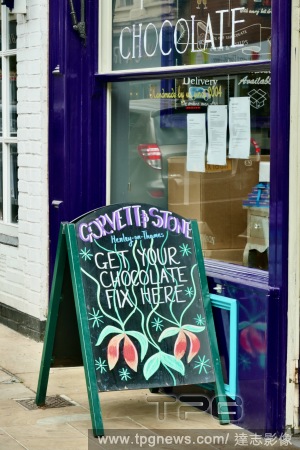 CHOCOLATE
Delivery
Available
Handmade by us since 2004
GORVETT & STONE
Henley-on-Thames
GET YOUR
CHOCOLATE
FIX HERE
TPG
www.tpgnews.com/達志影像